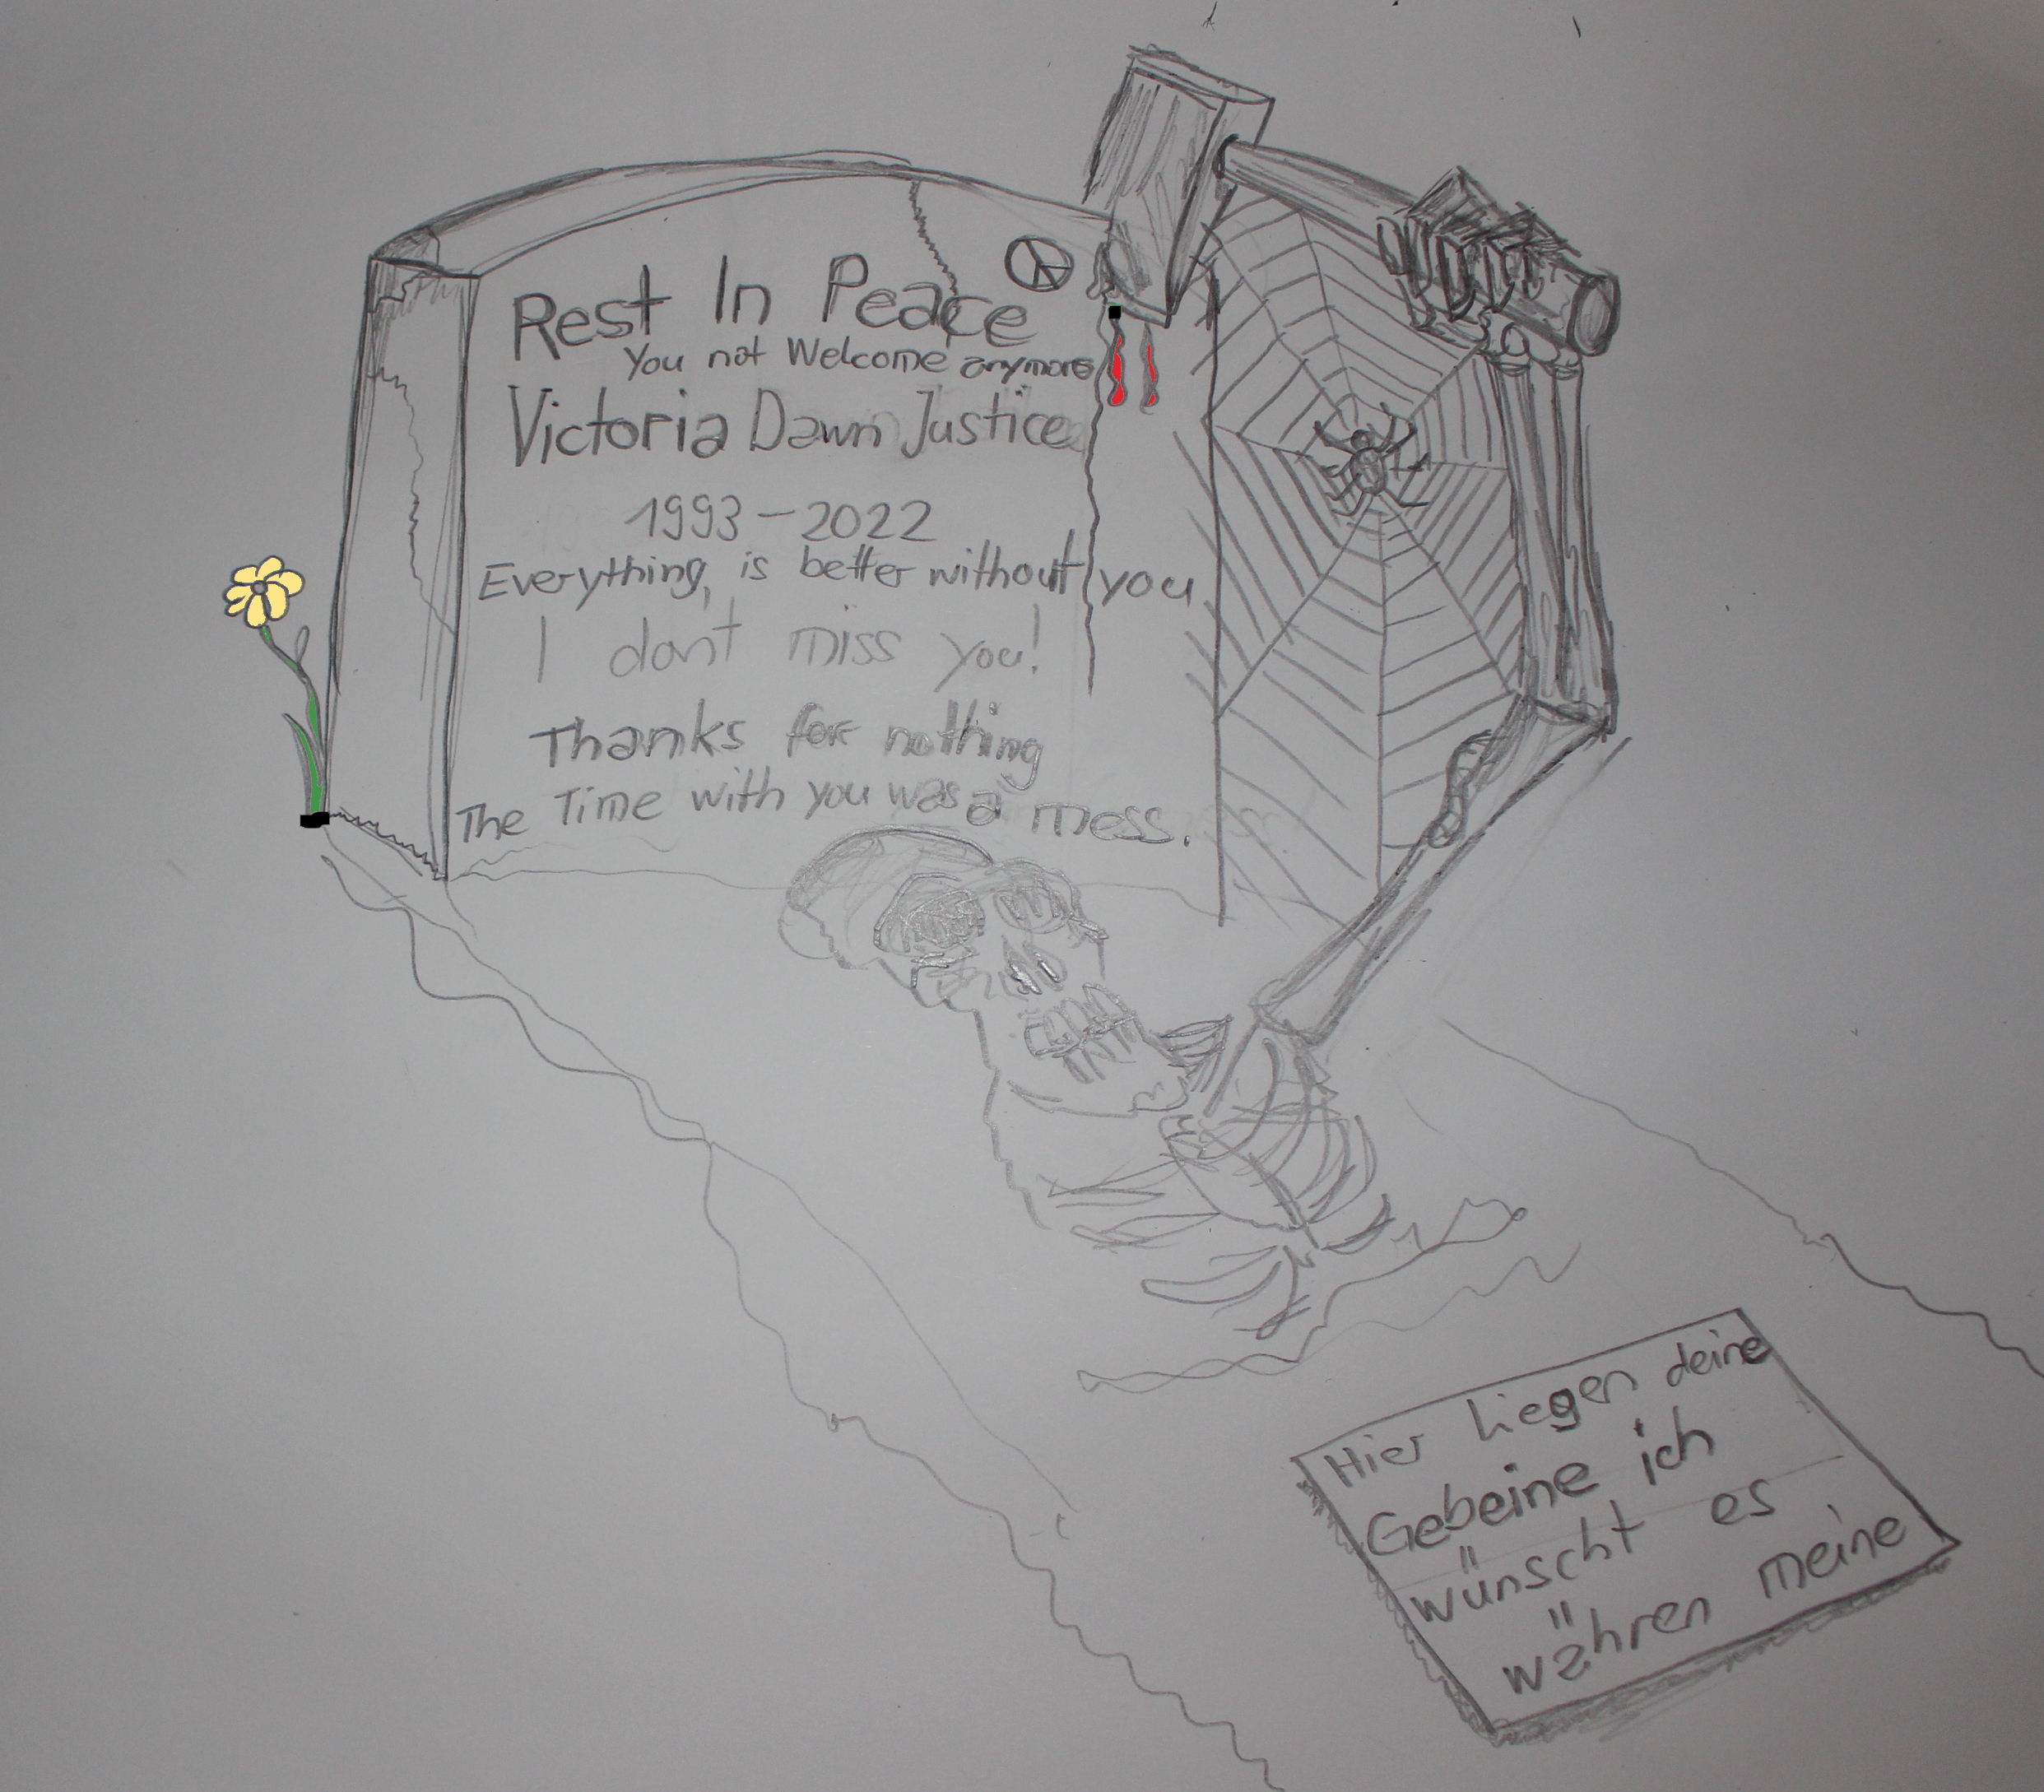 Rest In Peace
You not Welcome anymore
Victoria Dawn Justice
1993-2022
Everything, is better without you
I dont miss you!
Thanks for nothing
The Time with you was a mess.
Hier Liegen deine
Gebeine ich
wünscht es
währen meine